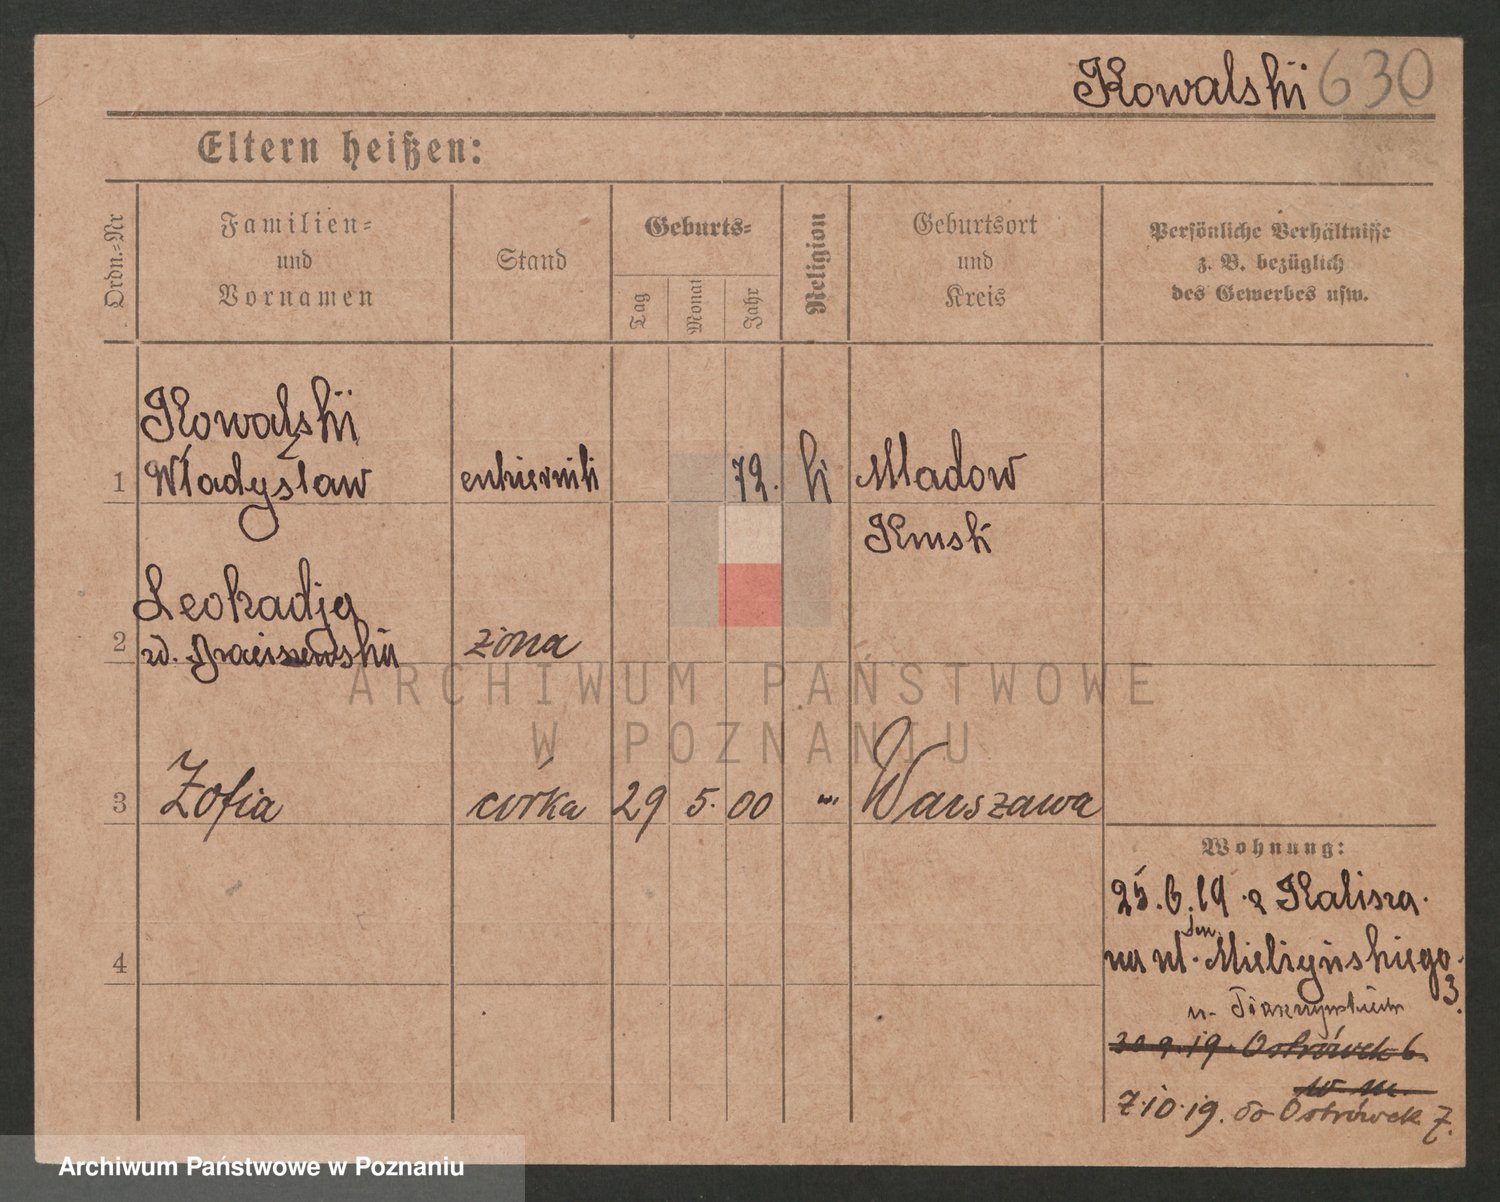 Kowalski 630
Eltern heißen:
Ordn.=Nr
Familien=
und
Vornamen
Stand
Geburts=
Tag
Monat
Jahr
Religion
Geburtsort
und
Kreis
Persönliche Verhältnisse
z. B. bezüglich
des Gewerbes usw.
Kowalski
1 Władysław 72. k
2 Leokadja żona
3 Zofia córka 29 5. 00 Warszawa
Wohnung:
25.6.19 z Kalisza.
na ul. Mielżyńskiego
3.
30.9.19. Ostrówek 6
w m.
7.10.19. do Ostrówek 7.
4
ARCHIWUM PAŃSTWOWE
W POZNANIU
Archiwum Państwowe w Poznaniu